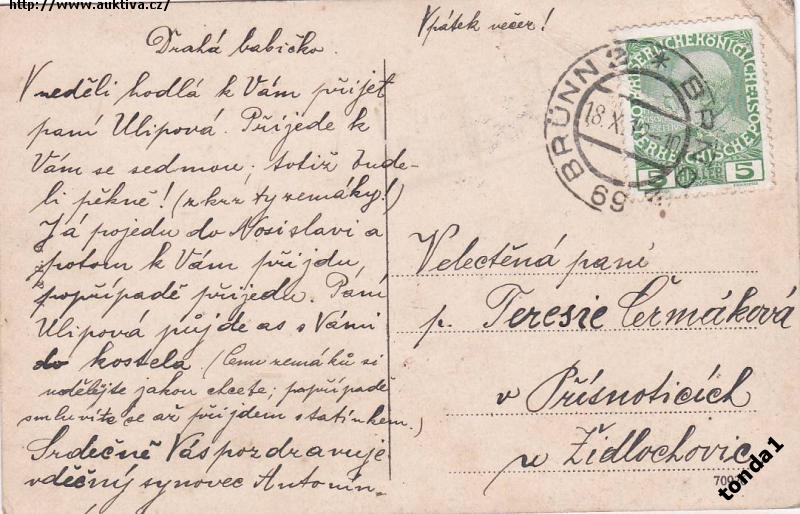 http://www.auktiva.cz/
V pátek večer!
Drahá babičko.
V neděli hodlá k Vám přijet
paní Ulipová. Přijede k
Vám se sedmou; totiž bude-
li pěkně! (skrz ty zemáky!)
Já pojedu do Nosislavi a
potom k Vám přijdu,
popřípadě přijedu. Paní
Ulipová půjde as s Vámi
do kostela (Cenu zemáků si
udělejte jakou chcete; popřípadě
smluvíte se až přijdem s tatínkem.)
Srdečně Vás pozdravuje
vděčný synovec Antonín.
BRÜNN 2 * BRNO
18.X
69
5 5
Velectěná paní
p. Teresie Čermáková
v Přísnoticích
u Židlochovic
709
tonda1